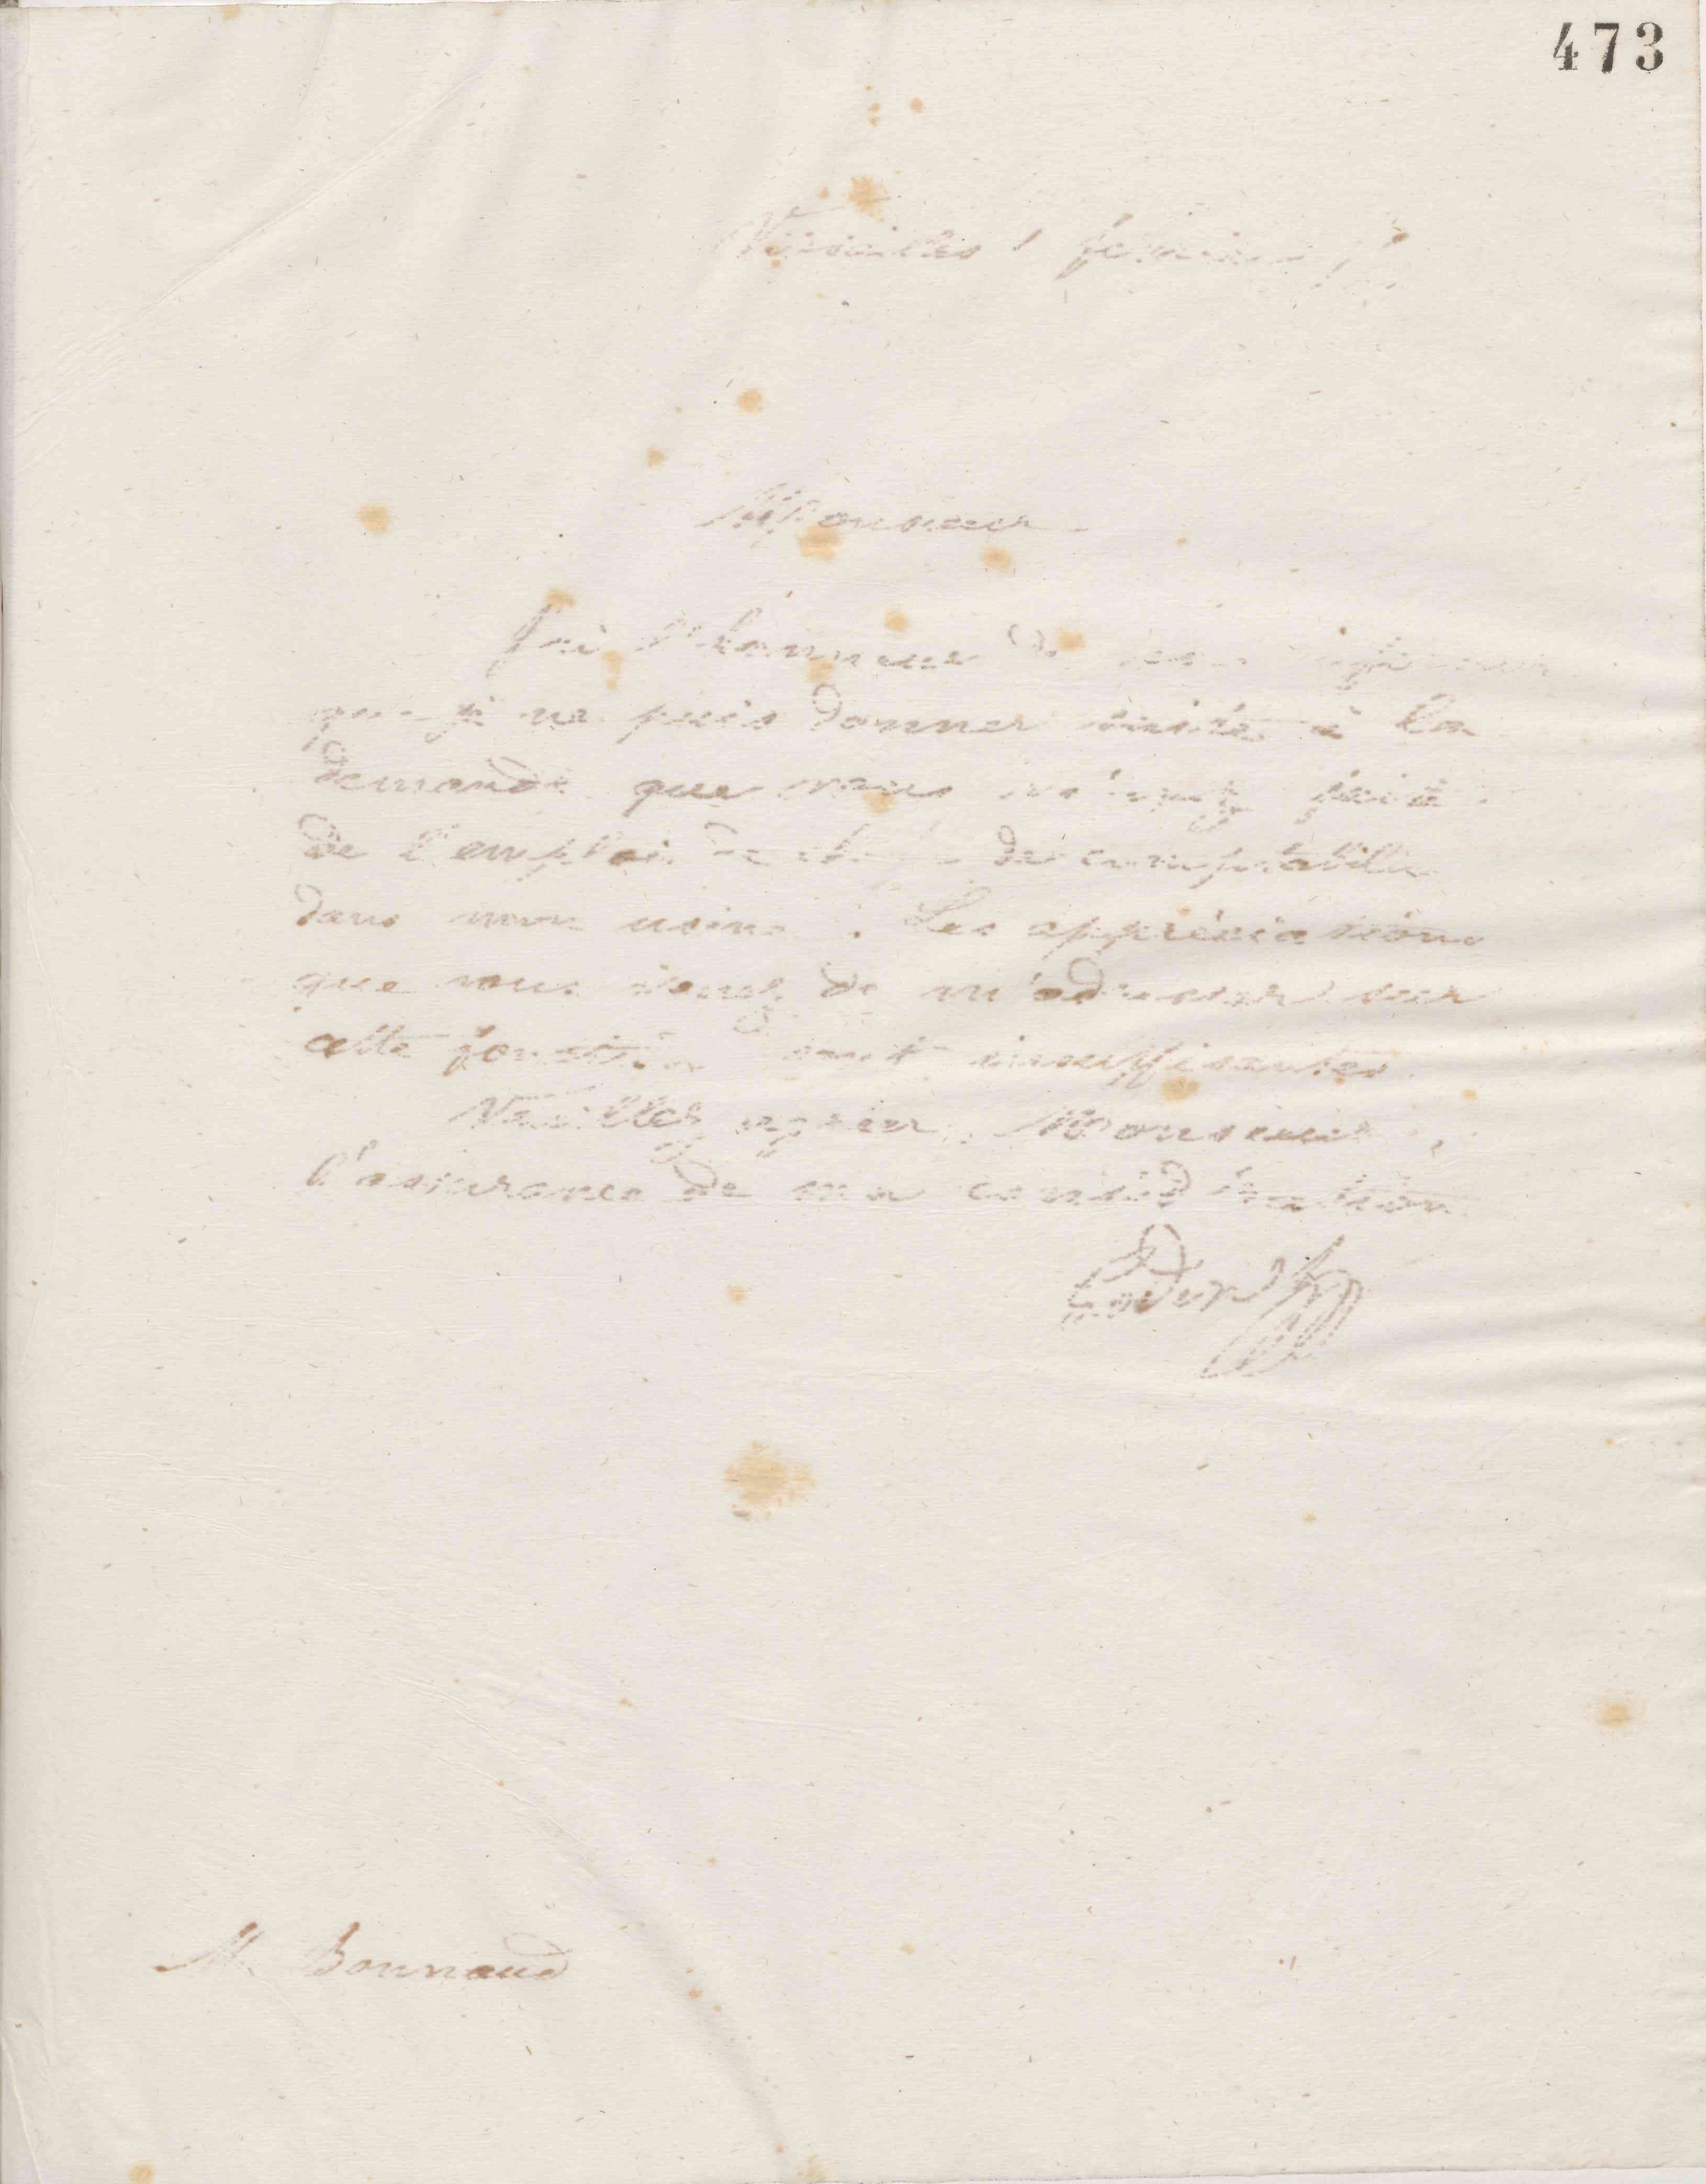 473
Versailles février
Monsieur
J'ai l'honneur de vous informer
que je ne puis donner suite à la
demande que vous m'avez faite
de l'emploi de chef de comptabilité
dans mon usine. Les appréciations
que vous venez de m'adresser sur
cette fonction sont insuffisantes.
Veuillez agréer, Monsieur,
l'assurance de ma considération
M. Bonnaud